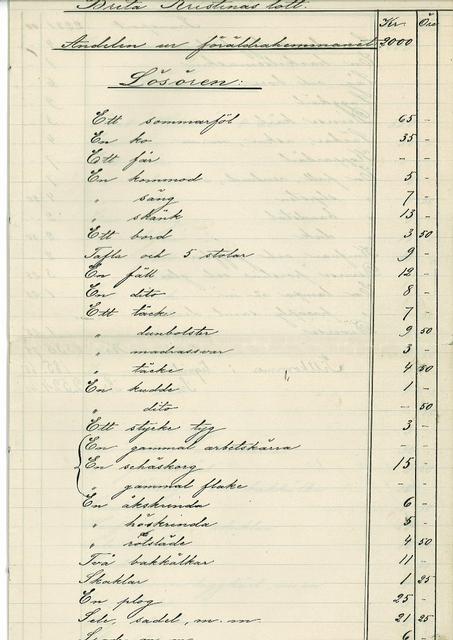 Brita Kristinas lott. Kr. Öre
Andelen ur föräldrahemmanet 2000
Lösören:
Ett sommarföl 65 -
En ko 35 -
Ett får - -
En kommod 5 -
" säng 7 -
" skänk 13 -
Ett bord 3 50
Tafla och 5 stolar 9 -
En fäll 12 -
En dito 8 -
Ett täcke 7 -
" dunbolster 9 50
" madrassvar 3 -
" täcke 4 50
En kudde 1 -
" dito - 50
Ett stycke tyg 3 -
En gammal arbetskärra -
En schäskorg 15 -
" gammal flake -
En åkskrinda 6 -
" höskrinda 5 -
" 4 50
Två bakkälkar 11 -
Skaklar 1 25
En plog 25 -
Sele, sadel, m. m. 21 25
6 -